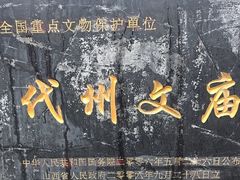 全国重点文物保护单位
代州文庙
中华人民共和国国务院二〇〇六年五月二十六日公布
山西省人民政府二〇〇六年九月二十八日立